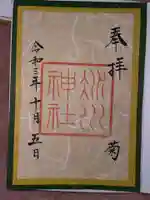 奉拝
菊
神社
令和三年十月五日